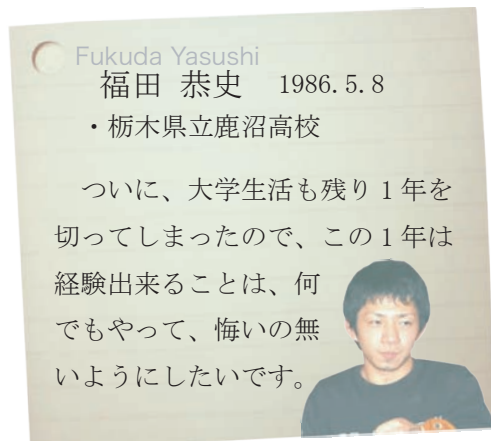 Fukuda Yasushi
福田 恭史　1986.5.8
・栃木県立鹿沼高校
ついに、大学生活も残り1年を
切ってしまったので、この1年は
経験出来ることは、何
でもやって、悔いの無
いようにしたいです。